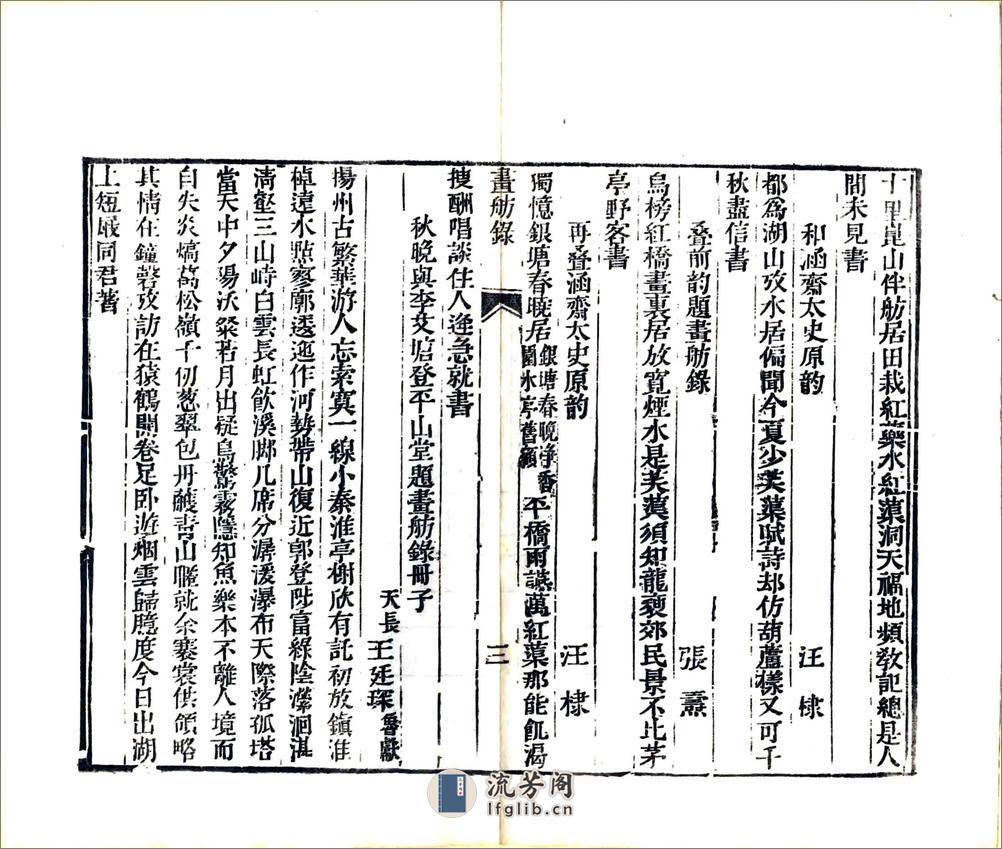 十里崑山伴舫居田栽紅藥水紅蕖洞天福地頻教記總是人
間未見書
和涵齋太史原韵
汪棣
都為湖山攷水居偏聞今夏少芙蕖賦詩却仿葫蘆樣又可千
秋盡信書
叠前韵題畫舫錄
張熏
烏榜紅橋畫裏居放寬煙水是芙蕖須知龍褒郊民景不比茅
亭野客書
再叠涵齋太史原韵
汪棣
獨憶銀塘春曉居銀塘春曉淨香園水亭舊額平橋雨讌萬紅蕖那能飢渴
畫舫錄
三
搜酬唱談住人逢急就書
秋晚與李艾塘登平山堂題畫舫錄冊子
天長王廷琛魯獻
揚州古繁華游人忘索寞一線小秦淮亭榭欣有託初放鎮淮
棹遠水照寥廓透迤作河勢帶山復近郭登陟富綠陰瀠洄湛
清壑三山峙白雲長虹飲溪腳几席分潺湲瀑布天際落孤塔
當天中夕陽沃粲若月出疑鳥驚霧隱知魚樂本不離人境而
自失炎熇萬松嶺千仞葱翠包丹雘青山曬就余褰裳供領略
其情在鐘磬攷訪在猿鶴開卷足臥遊烟雲歸臆度今日出湖
上短屐同君著
流芳阁
lfglib.cn